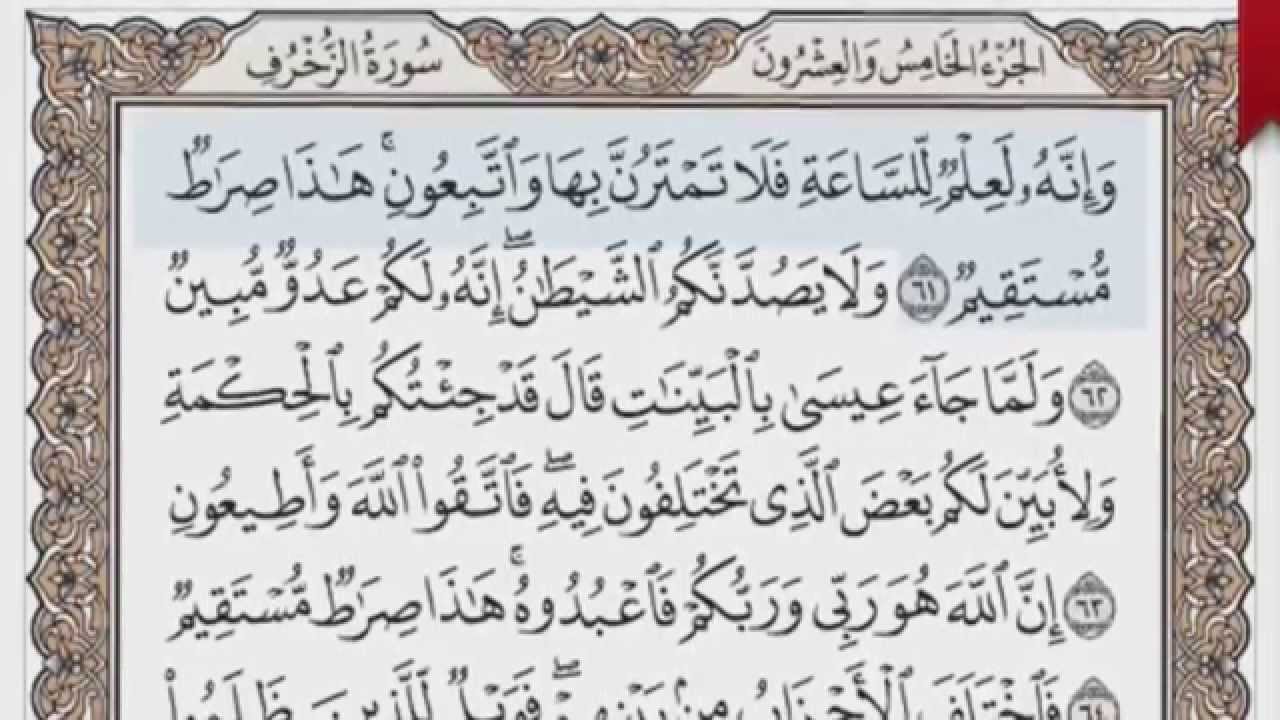 الجُزْءُ الخَامِسُ وَالعِشْرُونَ
سُورَةُ الزُّخْرُفِ
وَإِنَّهُۥ لَعِلْمٌ لِّلسَّاعَةِ فَلَا تَمْتَرُنَّ بِهَا وَٱتَّبِعُونِ ۚ هَٰذَا صِرَٰطٌ
مُّسْتَقِيمٌ ٦١ وَلَا يَصُدَّنَّكُمُ ٱلشَّيْطَٰنُ ۖ إِنَّهُۥ لَكُمْ عَدُوٌّ مُّبِينٌ
٦٢ وَلَمَّا جَآءَ عِيسَىٰ بِٱلْبَيِّنَٰتِ قَالَ قَدْ جِئْتُكُم بِٱلْحِكْمَةِ
وَلِأُبَيِّنَ لَكُم بَعْضَ ٱلَّذِى تَخْتَلِفُونَ فِيهِ ۖ فَٱتَّقُوا۟ ٱللَّهَ وَأَطِيعُونِ
٦٣ إِنَّ ٱللَّهَ هُوَ رَبِّى وَرَبُّكُمْ فَٱعْبُدُوهُ ۚ هَٰذَا صِرَٰطٌ مُّسْتَقِيمٌ
٦٤ فَٱخْتَلَفَ ٱلْأَحْزَابُ مِنۢ بَيْنِهِمْ ۖ فَوَيْلٌ لِّلَّذِينَ ظَلَمُوا۟